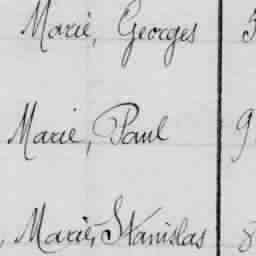 Marie, Georges
Marie, Paul
, Marie, Stanislas